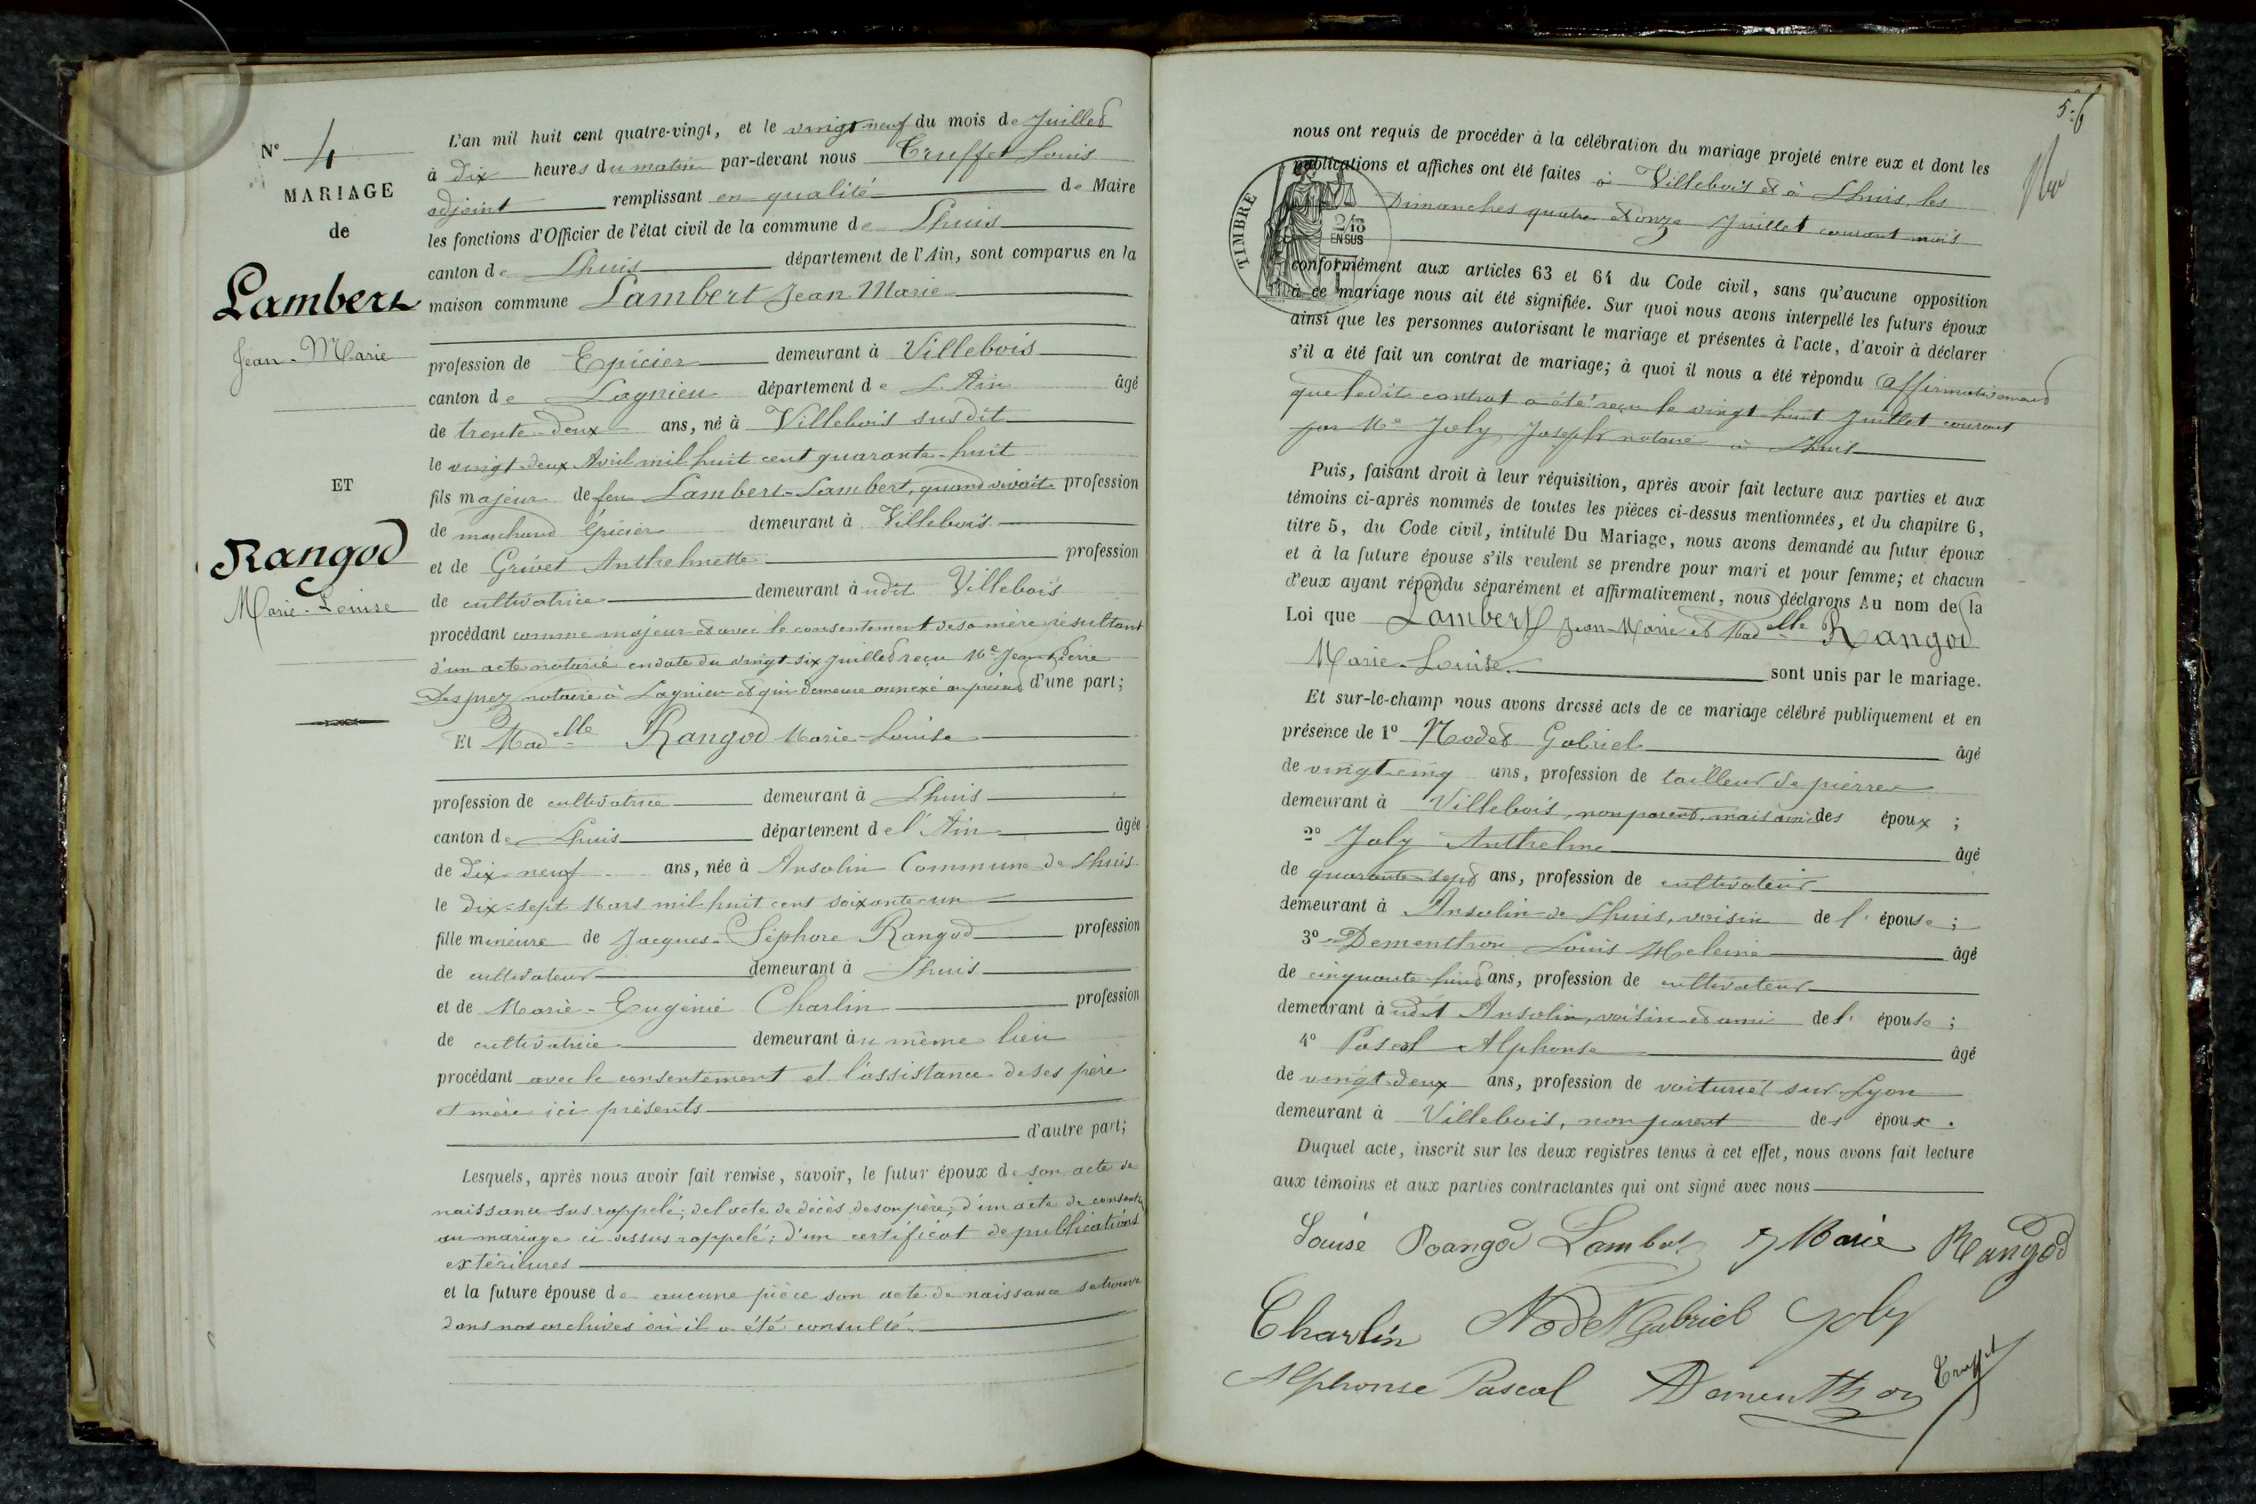 N° 4
MARIAGE
de
Lambert
Jean-Marie
ET
Rangod
Marie-Louise
L'an mil huit cent quatre-vingt, et le vingt neuf du mois de Juillet
à dix heures du matin par-devant nous Truffet Louis
adjoint remplissant en qualité de Maire
les fonctions d'Officier de l'état civil de la commune de Lhuis
canton de Lhuis département de l'Ain, sont comparus en la
maison commune Lambert Jean Marie
profession de Epicier demeurant à Villebois
canton de Lagnieu département de L'Ain âgé
de trente-deux ans, né à Villebois susdit
le vingt-deux Avril mil huit cent quarante-huit
fils majeur de feu Lambert-Lambert, quand vivait profession
de marchand Epicier demeurant à Villebois
et de Grivet Anthelmette profession
de cultivatrice demeurant àudit Villebois
procédant comme majeur et avec le consentement de sa mère résultant
d'un acte notarié en date du vingt six Juillet reçu Me Jean Pierre
Desprez notaire à Lagnieu et qui demeure annexé au présent d'une part;
Et Madelle Rangod Marie-Louise
profession de cultivatrice demeurant à Lhuis
canton de Lhuis département de l'Ain âgée
de dix-neuf ans, née à Ansolin Commune de Lhuis
le dix-sept Mars mil huit cent soixante-un
fille mineure de Jacques-Séphore Rangod profession
de cultivateur demeurant à Lhuis
et de Marie-Eugénie Charlin profession
de cultivatrice demeurant àu même lieu
procédant avec le consentement et l'assistance de ses père
et mère ici présents
d'autre part;
Lesquels, après nous avoir fait remise, savoir, le futur époux de son acte de
naissance sus rappelé; de l'acte de décès de son père; d'un acte de consentt
au mariage ci-dessus rappelé; d'un certificat de publications
extérieures
et la future épouse de aucune pièce son acte de naissance se trouve
dans nos archives où il a été consulté.
5-6
nous ont requis de procéder à la célébration du mariage projeté entre eux et dont les
publications et affiches ont été faites à Villebois et à Lhuis, les
Dimanches quatre et onze Juillet courant mois
TIMBRE
2/10
EN SUS
conformément aux articles 63 et 64 du Code civil, sans qu'aucune opposition
à ce mariage nous ait été signifiée. Sur quoi nous avons interpellé les futurs époux
ainsi que les personnes autorisant le mariage et présentes à l'acte, d'avoir à déclarer
s'il a été fait un contrat de mariage; à quoi il nous a été répondu affirmativement
que ledit contrat a été reçu le vingt huit Juillet courant
par Me Joly Joseph notaire à Lhuis
Puis, faisant droit à leur réquisition, après avoir fait lecture aux parties et aux
témoins ci-après nommés de toutes les pièces ci-dessus mentionnées, et du chapitre 6,
titre 5, du Code civil, intitulé Du Mariage, nous avons demandé au futur époux
et à la future épouse s'ils veulent se prendre pour mari et pour femme; et chacun
d'eux ayant répondu séparément et affirmativement, nous déclarons Au nom de la
Loi que Lambert Jean-Marie et Madelle Rangod
Marie-Louise sont unis par le mariage.
Et sur-le-champ nous avons dressé acte de ce mariage célébré publiquement et en
présence de 1° Nodet Gabriel âgé
de vingt-cinq ans, profession de tailleur de pierres
demeurant à Villebois, non parent, mais ami des époux ;
2° Joly Anthelme âgé
de quarante-sept ans, profession de cultivateur
demeurant à Ansolin de Lhuis, voisin de l' épouse ;
3° Dementhon Louis âgé
de cinquante huit ans, profession de cultivateur
demeurant à udit Ansolin, voisin et ami de l' épouse ;
4° Pascal Alphonse âgé
de vingt-deux ans, profession de voiturier sur Lyon
demeurant à Villebois, non parent des époux.
Duquel acte, inscrit sur les deux registres tenus à cet effet, nous avons fait lecture
aux témoins et aux parties contractantes qui ont signé avec nous
Louise Rangod Lambert J Marie Rangod
Charlin Nodet Gabriel Joly
Alphonse Pascal Dementhon Truffet